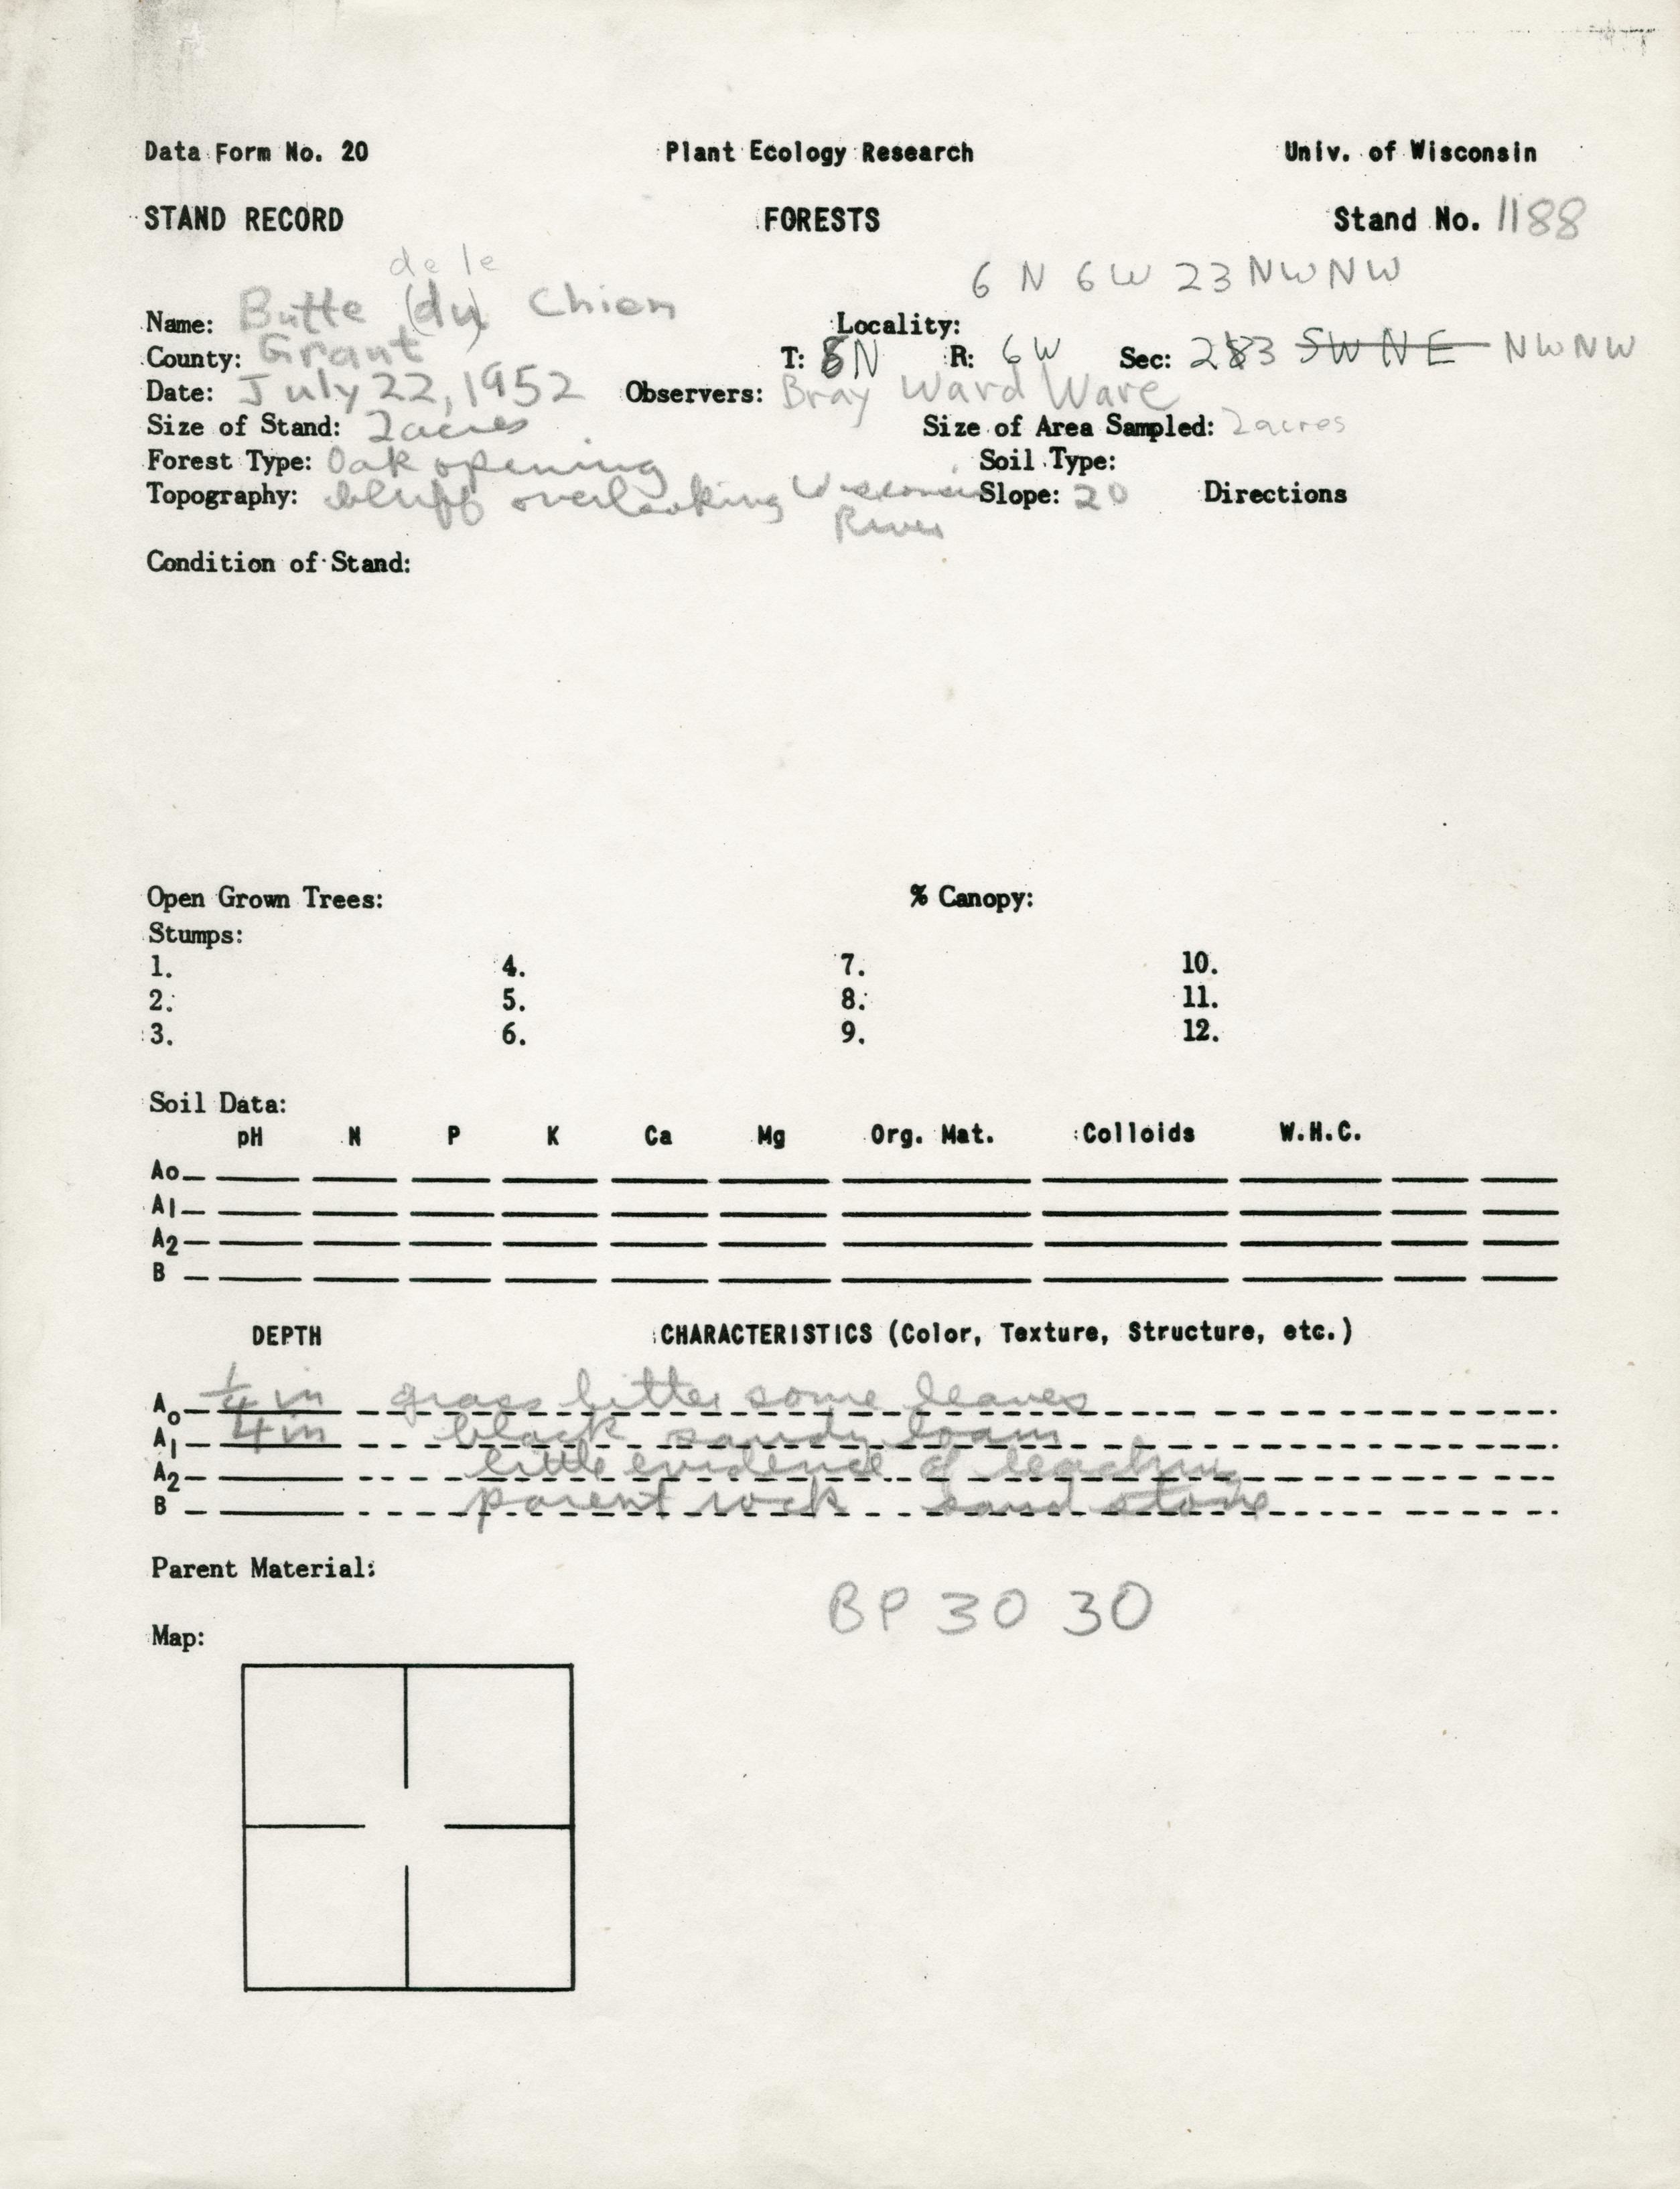 Data Form No. 20 Plant Ecology Research Univ. of Wisconsin
STAND RECORD FORESTS Stand No. 1188
de le
6 N 6 W 23 NW NW
Name: Butte (du) Chien Locality:
County: Grant T: 6N R: 6W Sec: 23 SW NE NW NW
Date: July 22, 1952 Observers: Bray Ward Ware
Size of Stand: 2 acres Size of Area Sampled: 2 acres
Forest Type: Oak opening Soil Type:
Topography: bluff overlooking Wisconsin Slope: 20 Directions
River
Condition of Stand:
Open Grown Trees: % Canopy:
Stumps:
1. 4. 7. 10.
2. 5. 8. 11.
3. 6. 9. 12.
Soil Data:
pH N P K Ca Mg Org. Mat. Colloids W.H.C.
Ao
A1
A2
B
DEPTH CHARACTERISTICS (Color, Texture, Structure, etc.)
Ao 1/4 in grass litter some leaves
A1 4 in black sandy loam
A2 little evidence of leaching
B parent rock sand stone
Parent Material:
BP 30 30
Map: